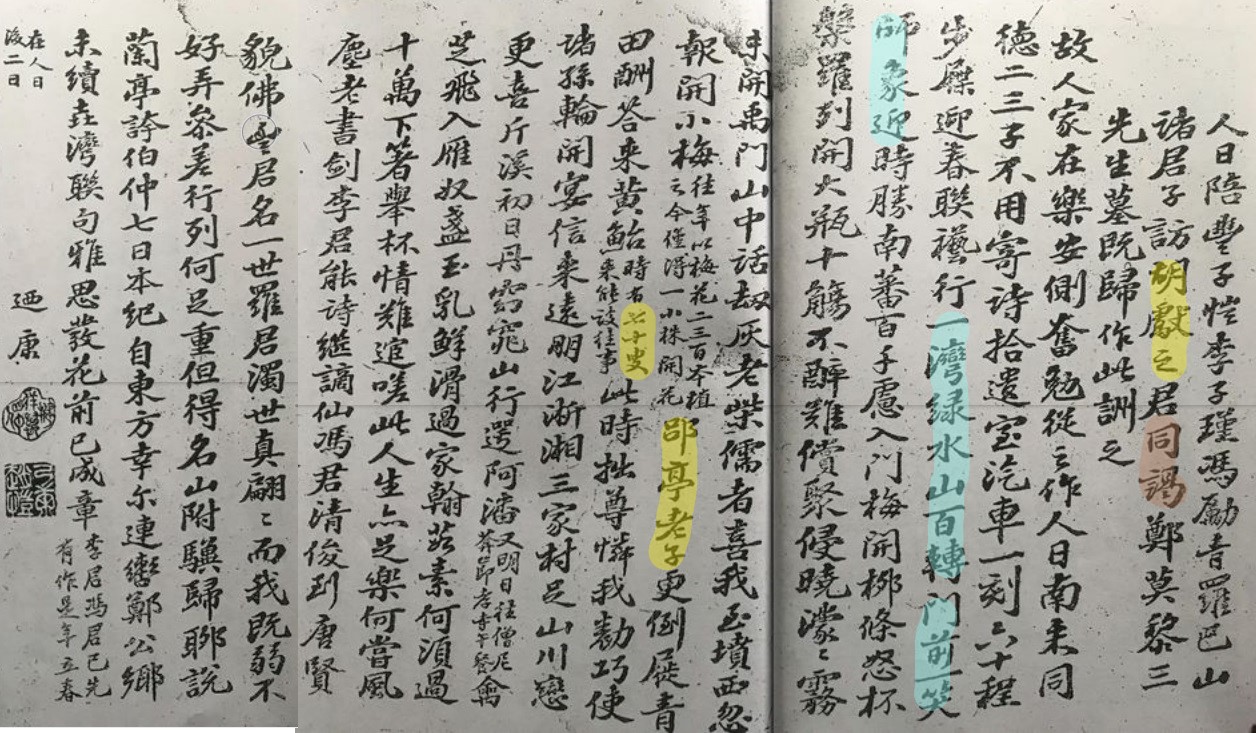 人日陪豐子愷李子瑾馮勵青羅邑山
諸君子訪胡獻之君同謁鄭莫黎三
先生墓既歸作此訓之
故人家在樂安側奮勉從之作人日南来同
德二三子不用寄詩拾遺宅汽車一刻六十程
步屧迎春聯襼行一灣緑水山百轉門前一笑
師象迎時勝南蕃百子慮入門梅開栁條怒杯
槃羅列開大瓶十觴不醉難償聚侵曉濛〻霧
未開禹門山中話劫灰老柴儒者喜我至墳西忽
報開小梅往年以梅花二三百本植之今僅得一小株開花邵亭老子更倒屣青
田酬答来黄鮐時有七十叟来能談往事此時拙尊憐我勸巧使
諸孫輪開宴信来遠朋江淅湘三家村足山川戀
更喜斤溪初日丹窈窕山行遌阿潘又明日往僧尼斧節孝寺午餐禽
芝飛入雁奴盞玉乳鮮滑過家翰蔬素何須過
十萬下箸舉杯情難逭嗟此人生亦足樂何當風
塵老書劍李君能詩繼謫仙馮君清俊到唐賢
貌佛豐君名一世羅君濁世真翩〻而我既弱不
好弄參差行列何足重但得名山附驥歸聊説
蘭亭誇伯仲七日本紀自東方幸尔連鑣鄭公鄉
未續垚灣聯句雅思發花前已成章李君馮君已先有作是年立春
在人日後二日
迺康